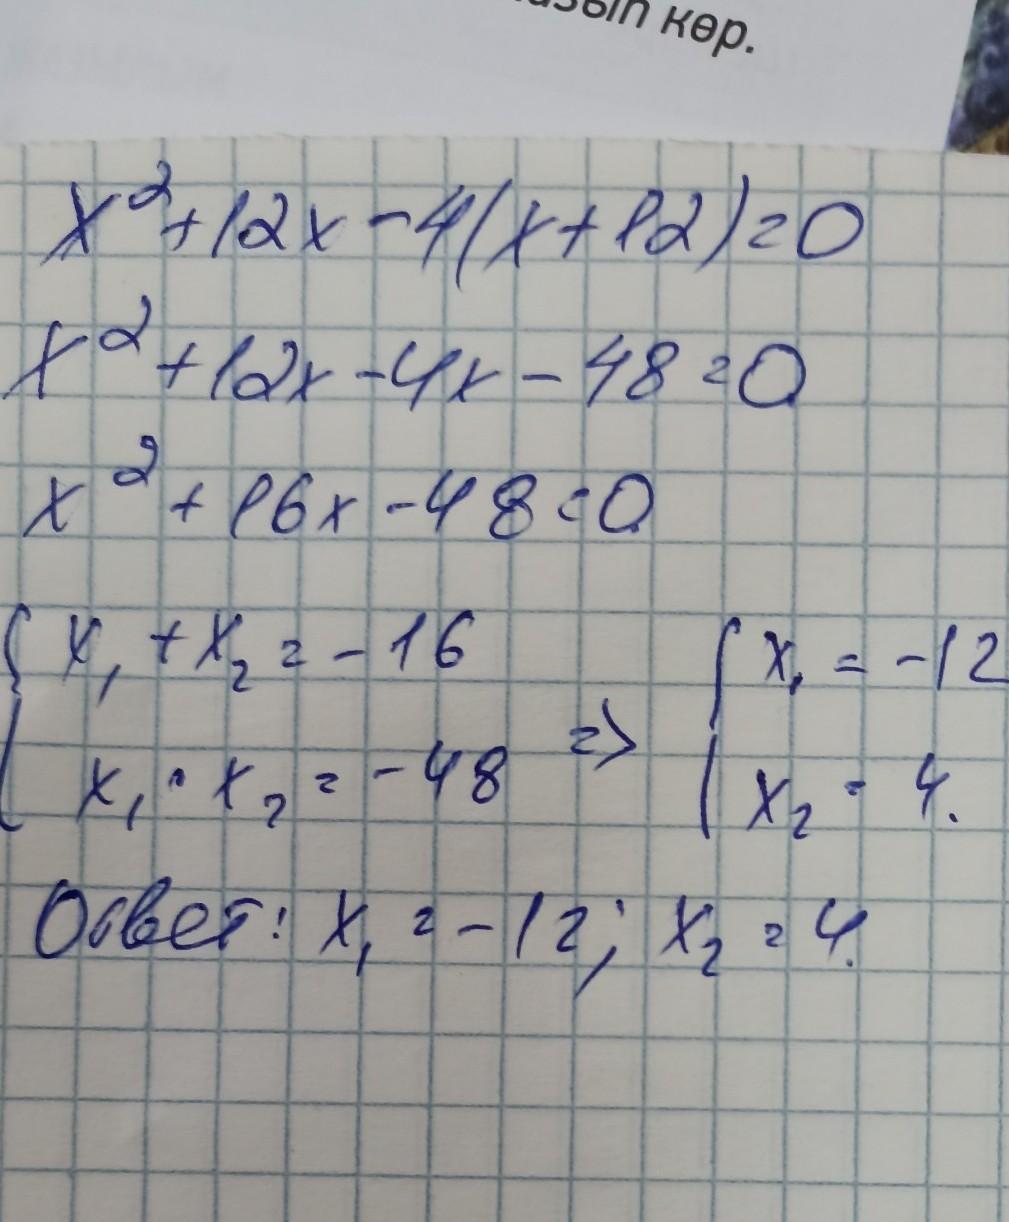 көр.
x² + 12x - 4(x + 12) = 0
x² + 12x - 4x - 48 = 0
x² + 16x - 48 = 0
{ x₁ + x₂ = -16
x₁ · x₂ = -48 => { x₁ = -12
x₂ = 4.
Ответ: x₁ = -12; x₂ = 4.